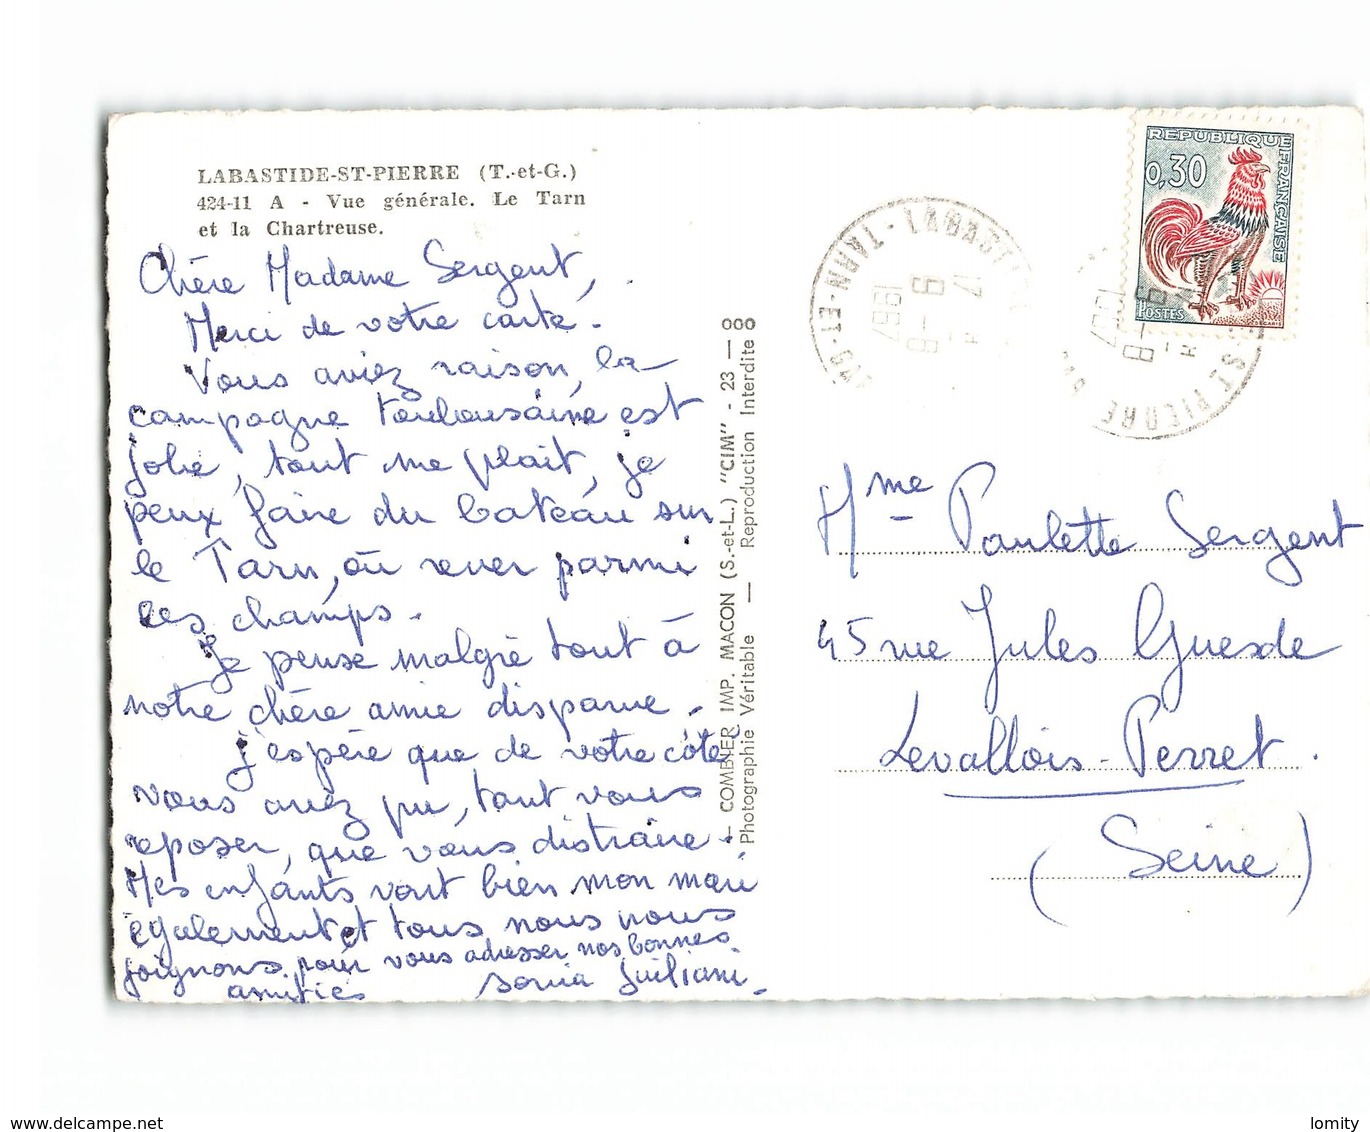 LABASTIDE-ST-PIERRE (T.-et-G.)
424-11 A - Vue générale. Le Tarn
et la Chartreuse.
Chère Madame Sergent,
Merci de votre carte.
Vous aviez raison, la
campagne toulousaine est
jolie, tout me plait, je
peux faire du bateau sur
le Tarn, où rever parmi
les champs.
Je pense malgré tout à
notre chère amie disparue.
J'espère que de votre côté
vous avez pu, tant vous
reposer, que vous distraire.
Mes enfants vont bien mon mari
également et tous nous nous
joignons pour vous adresser nos bonnes
amitiés Sonia Juiliani
COMBIER IMP. MACON (S.-et-L.) "CIM" - 23 — 000
Photographie Véritable — Reproduction Interdite
REPUBLIQUE FRANÇAISE
0,30
POSTES
DECARIS
TARN-ET-
17 H
8 - 9
1967
ST-PIERRE
8 - 9
1967
Mme Paulette Sergent
45 rue Jules Guesde
Levallois-Perret.
(Seine)
www.delcampe.net
lomity